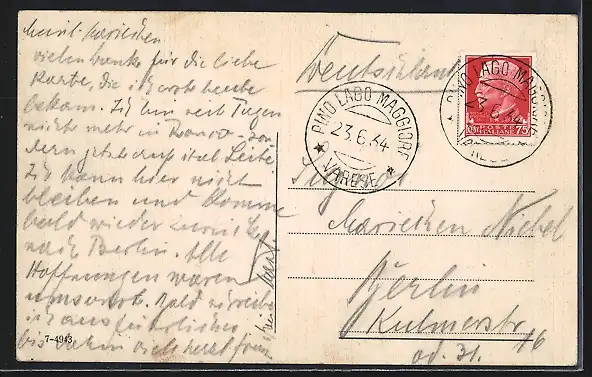 vielen Dank für die liebe
Karte, die ich erst heute
bekam. Ich bin seit Tagen
nicht mehr in
dern jetzt auf ital. Seite
Ich kann hier nicht
bleiben und komme
bald wieder zurück
nach Berlin. Alle
Hoffnungen waren
umsonst. Bald schreibe
ich ausführlicher
bis dahin
7-4943
Deutschland
PINO LAGO MAGGIORE
23.6.34
VARESE
PINO LAGO MAGGIORE
23.6.34
POSTE ITALIANE
75
Fräulein
Mariechen Nickel
Berlin
Kulmerstr. 16
od. 31.